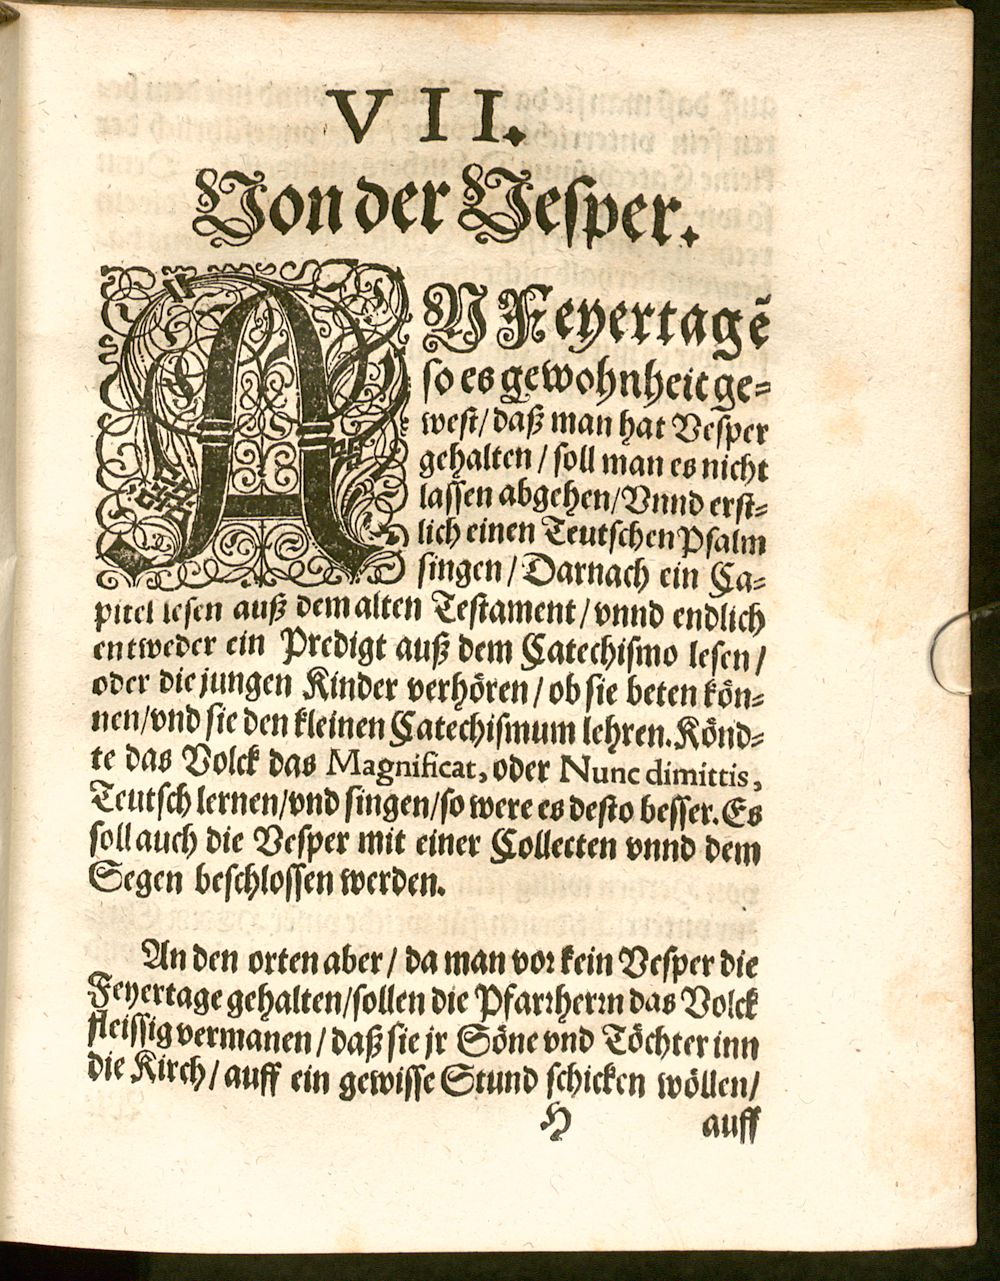 VII.
Von der Vesper.
AN Feyertagẽ
so es gewohnheit ge=
west/ daß man hat Vesper
gehalten / soll man es nicht
lassen abgehen/ Vnnd erst=
lich einen Teutschen Psalm
singen / Darnach ein Ca=
pitel lesen auß dem alten Testament / vnnd endlich
entweder ein Predigt auß dem Catechismo lesen /
oder die jungen Kinder verhören / ob sie beten kön=
nen/vnd sie den kleinen Catechismum lehren. Könd=
te das Volck das Magnificat, oder Nunc dimittis,
Teutsch lernen/vnd singen/so were es desto besser. Es
soll auch die Vesper mit einer Collecten vnnd dem
Segen beschlossen werden.
An den orten aber / da man vor kein Vesper die
Feyertage gehalten/sollen die Pfarrherrn das Volck
fleissig vermanen / daß sie jr Söne vnd Töchter inn
die Kirch/ auff ein gewisse Stund schicken wöllen/
H auff